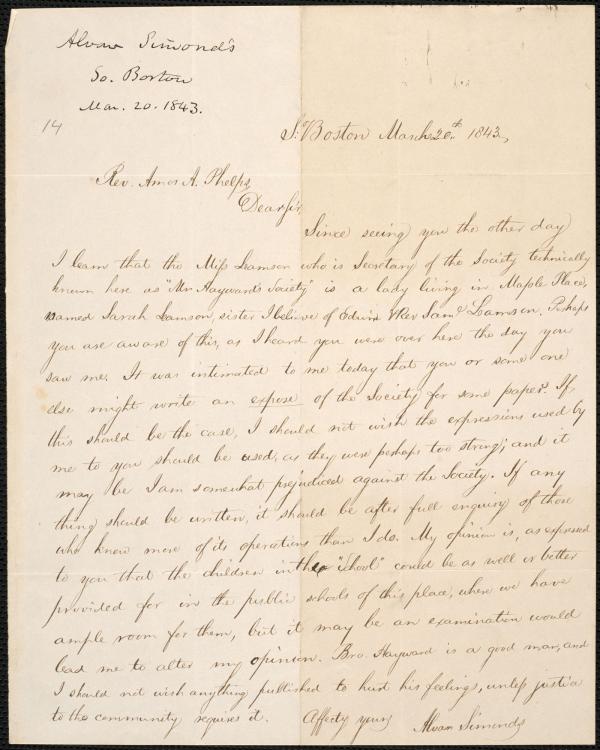 Alvan Simonds
So. Boston
Mar. 20. 1843.
14
So. Boston March 20th 1843,
Rev. Amos A. Phelps
Dear Sir
Since seeing you the other day
I learn that the Miss Lamson who is Secretary of the Society technically
known here as "Mr Hayward's Society" is a lady living in Maple Place,
named Sarah Lamson, sister I believe of Edwin & Rev Saml Lamson. Perhaps
you are aware of this, as I heard you were over here the day you
saw me. It was intimated to me today that you or some one
else might write an expose of the Society for some paper. If
this should be the case, I should not wish the expressions used by
me to you should be used, as they were perhaps too strong; and it
may be I am somewhat prejudiced against the Society. If any
thing should be written, it should be after full enquiry of those
who know more of its operations than I do. My opinion is, as expressed
to you that the children in the "School" could be as well or better
provided for in the public schools of this place, where we have
ample room for them, but it may be an examination would
lead me to alter my opinion. Bro. Hayward is a good man, and
I should not wish anything published to hurt his feelings, unless justice
to the community requires it. Affecty yours Alvan Simonds